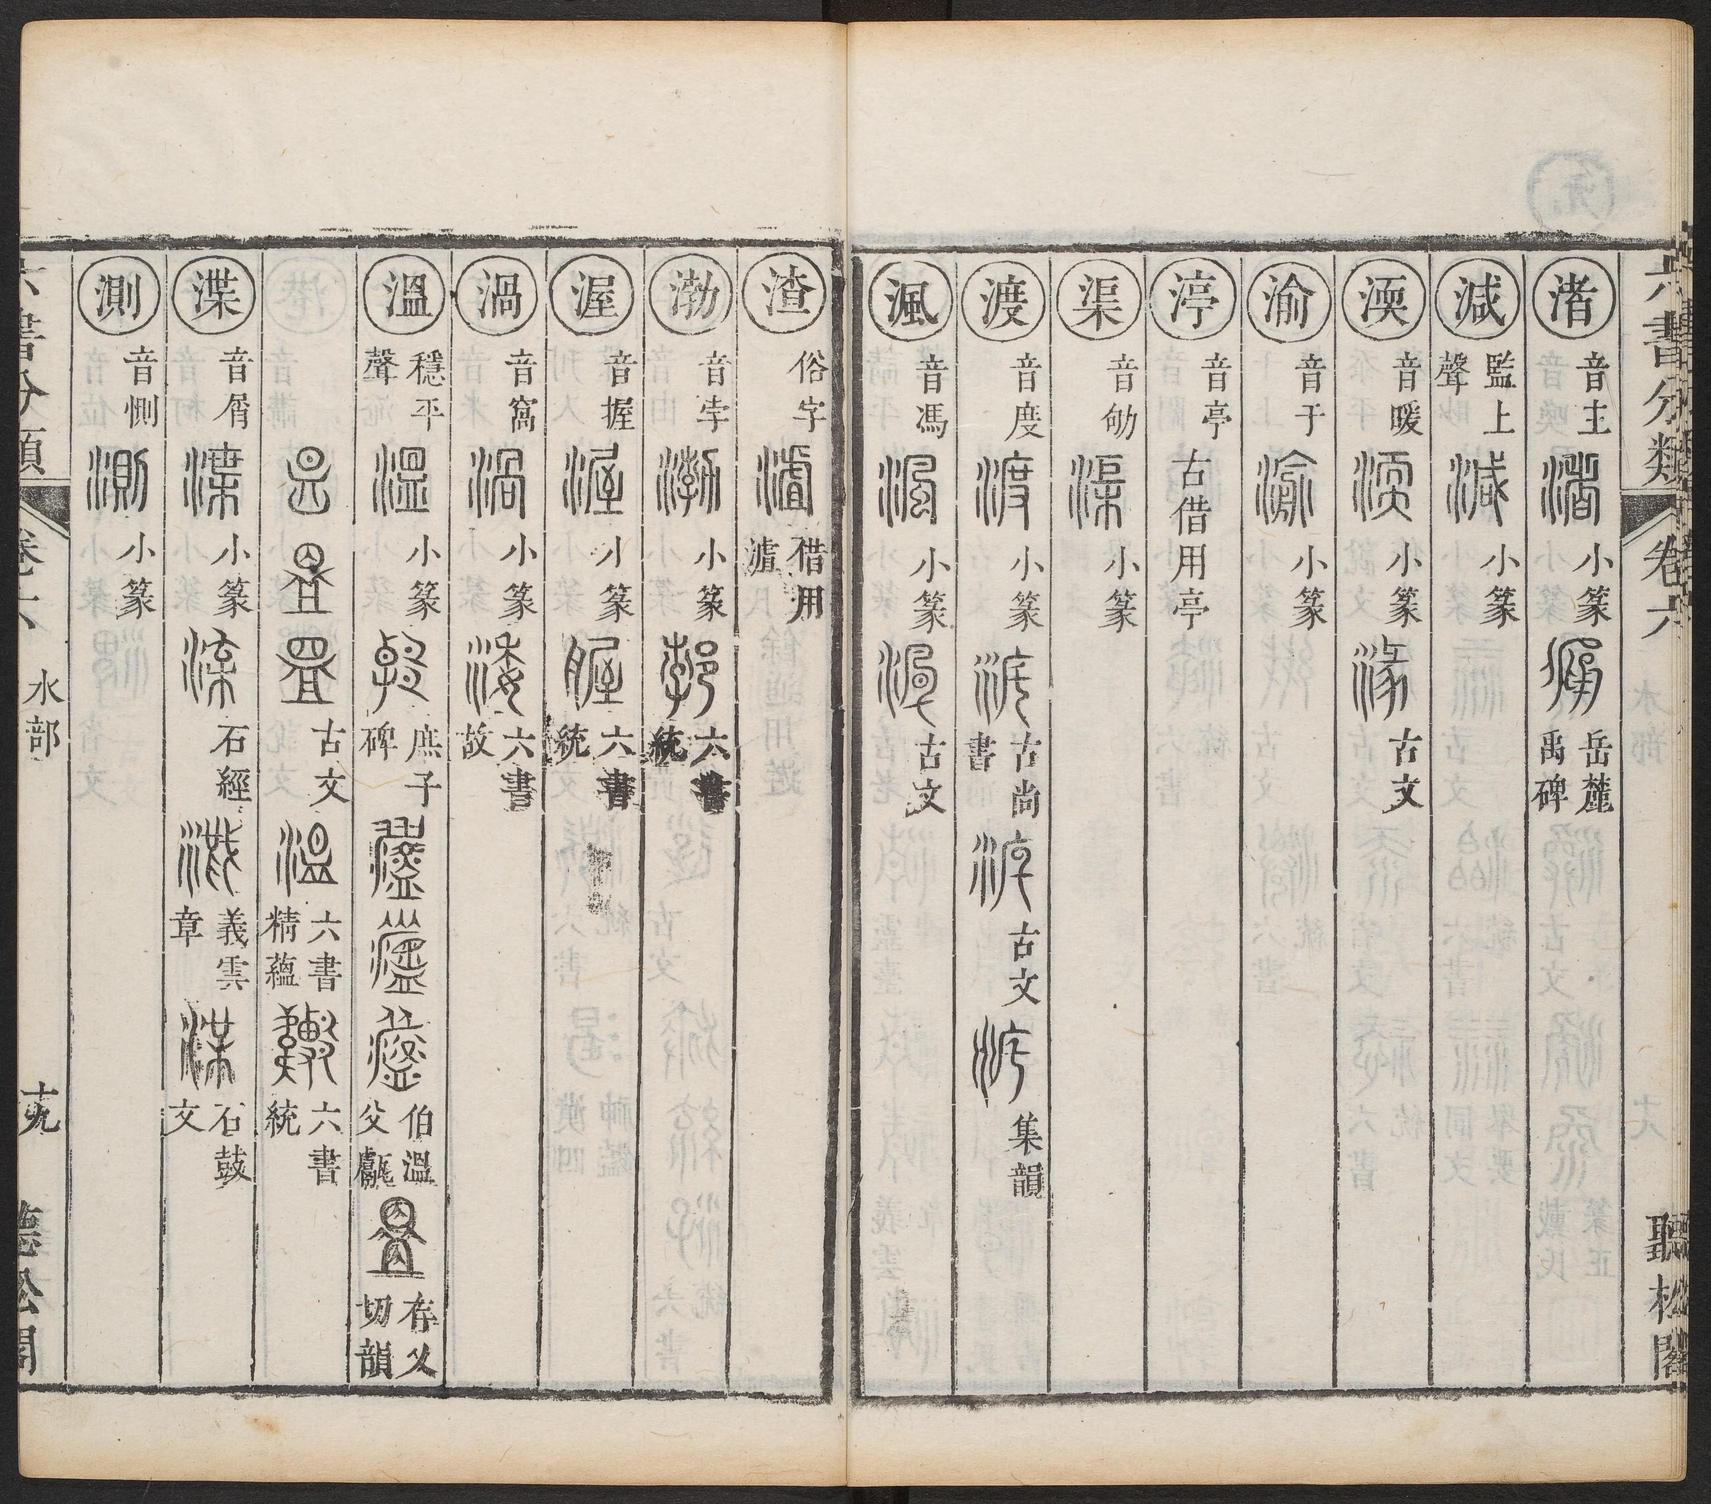 六書分類 卷六 水部 聽松閣
渚 音主 小篆 岳麓禹碑
減 監上聲 小篆
渜 音暖 小篆 古文
渝 音于 小篆
渟 音亭 古借用亭
渠 音劬 小篆
渡 音度 小篆 古尚書 古文 集韻
渢 音馮 小篆 古文
渣 俗字 借用
渤 音孛 小篆 六書統
渥 音握 小篆 六書統
渦 音窩 小篆 六書故
溫 穩平聲 小篆 庶子碑 伯溫父甗 存乂切韻
古文 六書精蘊 六書統
渫 音屑 小篆 石經 義雲章 石鼓文
測 音惻 小篆
六書分類 卷六 水部 十九 聽松閣